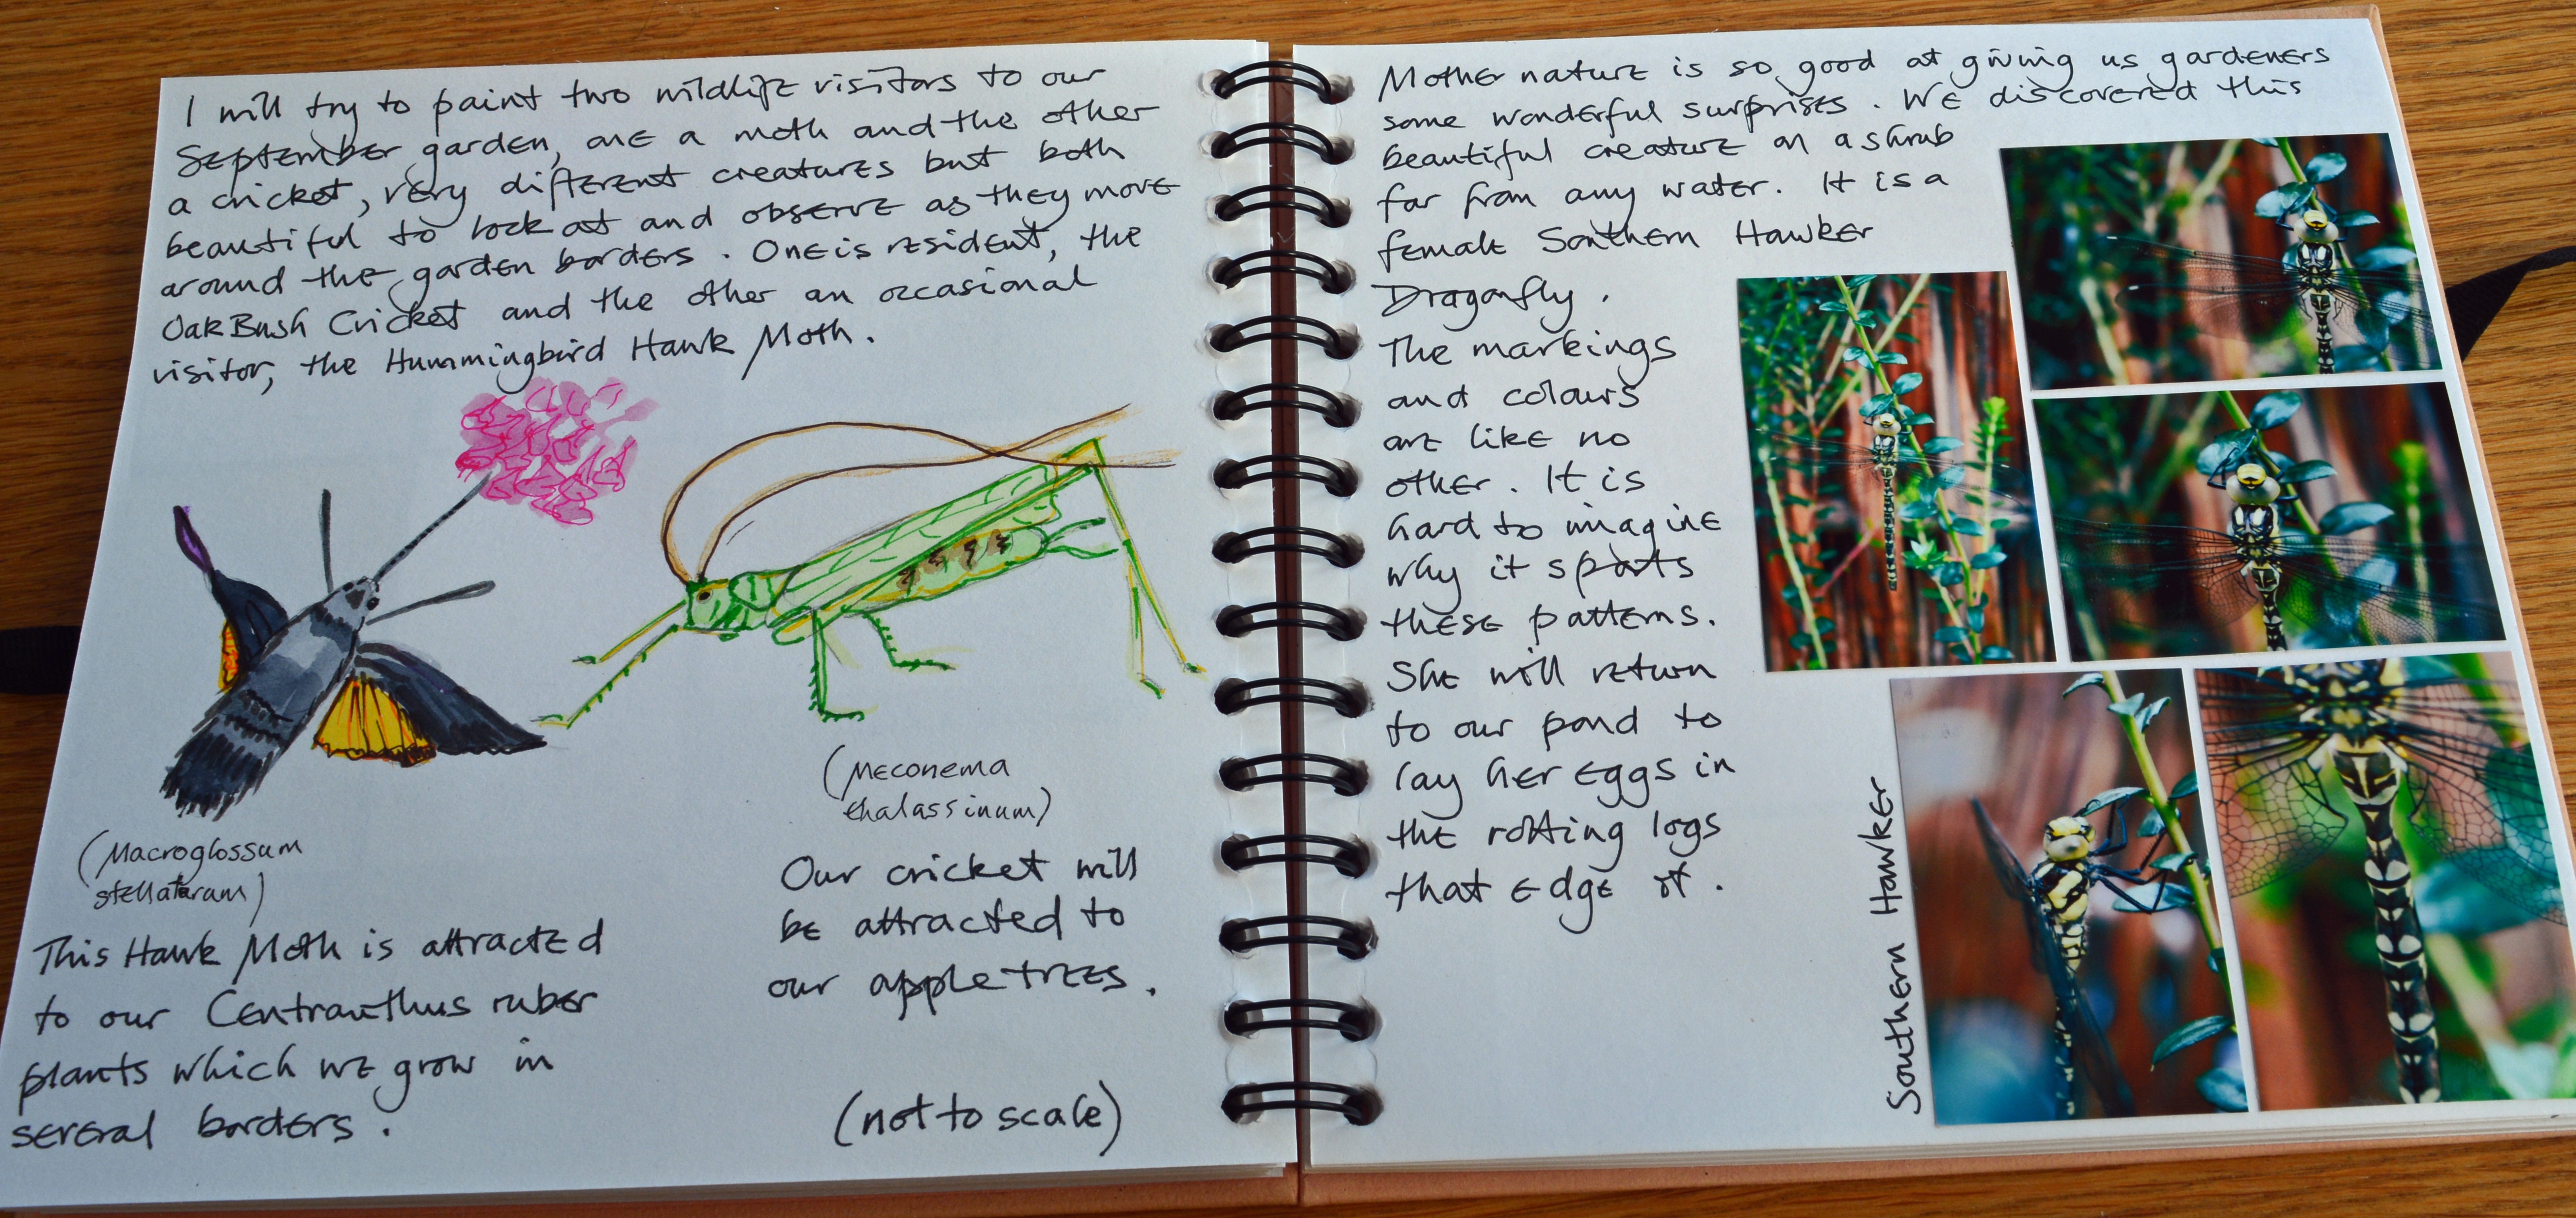 I will try to paint two wildlife visitors to our
September garden, one a moth and the other
a cricket, very different creatures but both
beautiful to look at and observe as they move
around the garden borders. One is resident, the
Oak Bush Cricket and the other an occasional
visitor, the Hummingbird Hawk Moth.
(Macroglossum
stellatarum)
This Hawk Moth is attracted
to our Centranthus ruber
plants which we grow in
several borders.
(Meconema
thalassinum)
Our cricket will
be attracted to
our apple trees.
(not to scale)
Mother nature is so good at giving us gardeners
some wonderful surprises. We discovered this
beautiful creature on a shrub
far from any water. It is a
female Southern Hawker
Dragonfly.
The markings
and colours
are like no
other. It is
hard to imagine
why it sports
these patterns.
She will return
to our pond to
lay her eggs in
the rotting logs
that edge it.
Southern Hawker